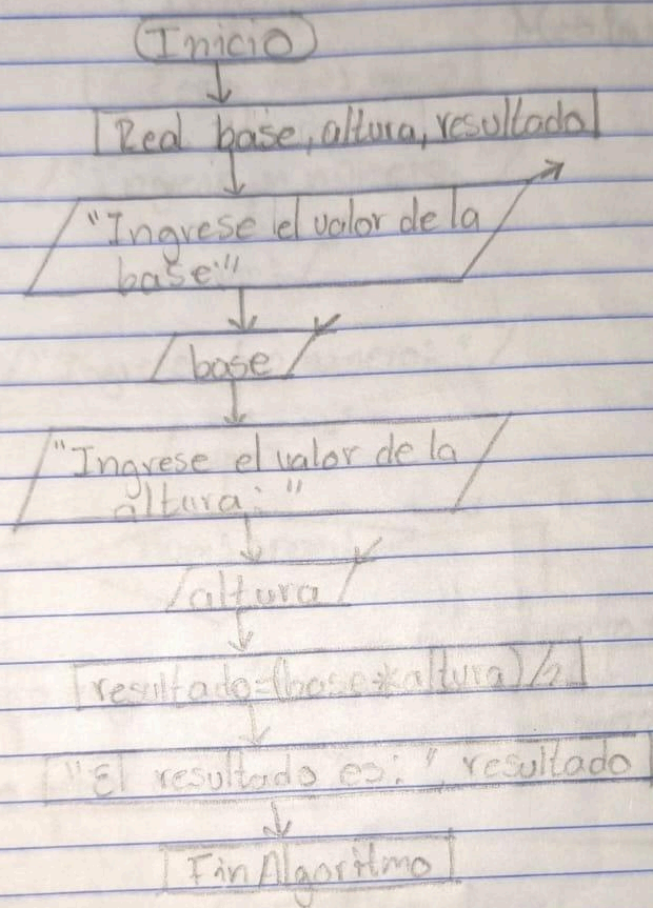 Inicio
Real base, altura, resultado
"Ingrese el valor de la
base:"
base
"Ingrese el valor de la
altura: "
altura
resultado=(base*altura)/2
"El resultado es: ", resultado
Fin Algoritmo